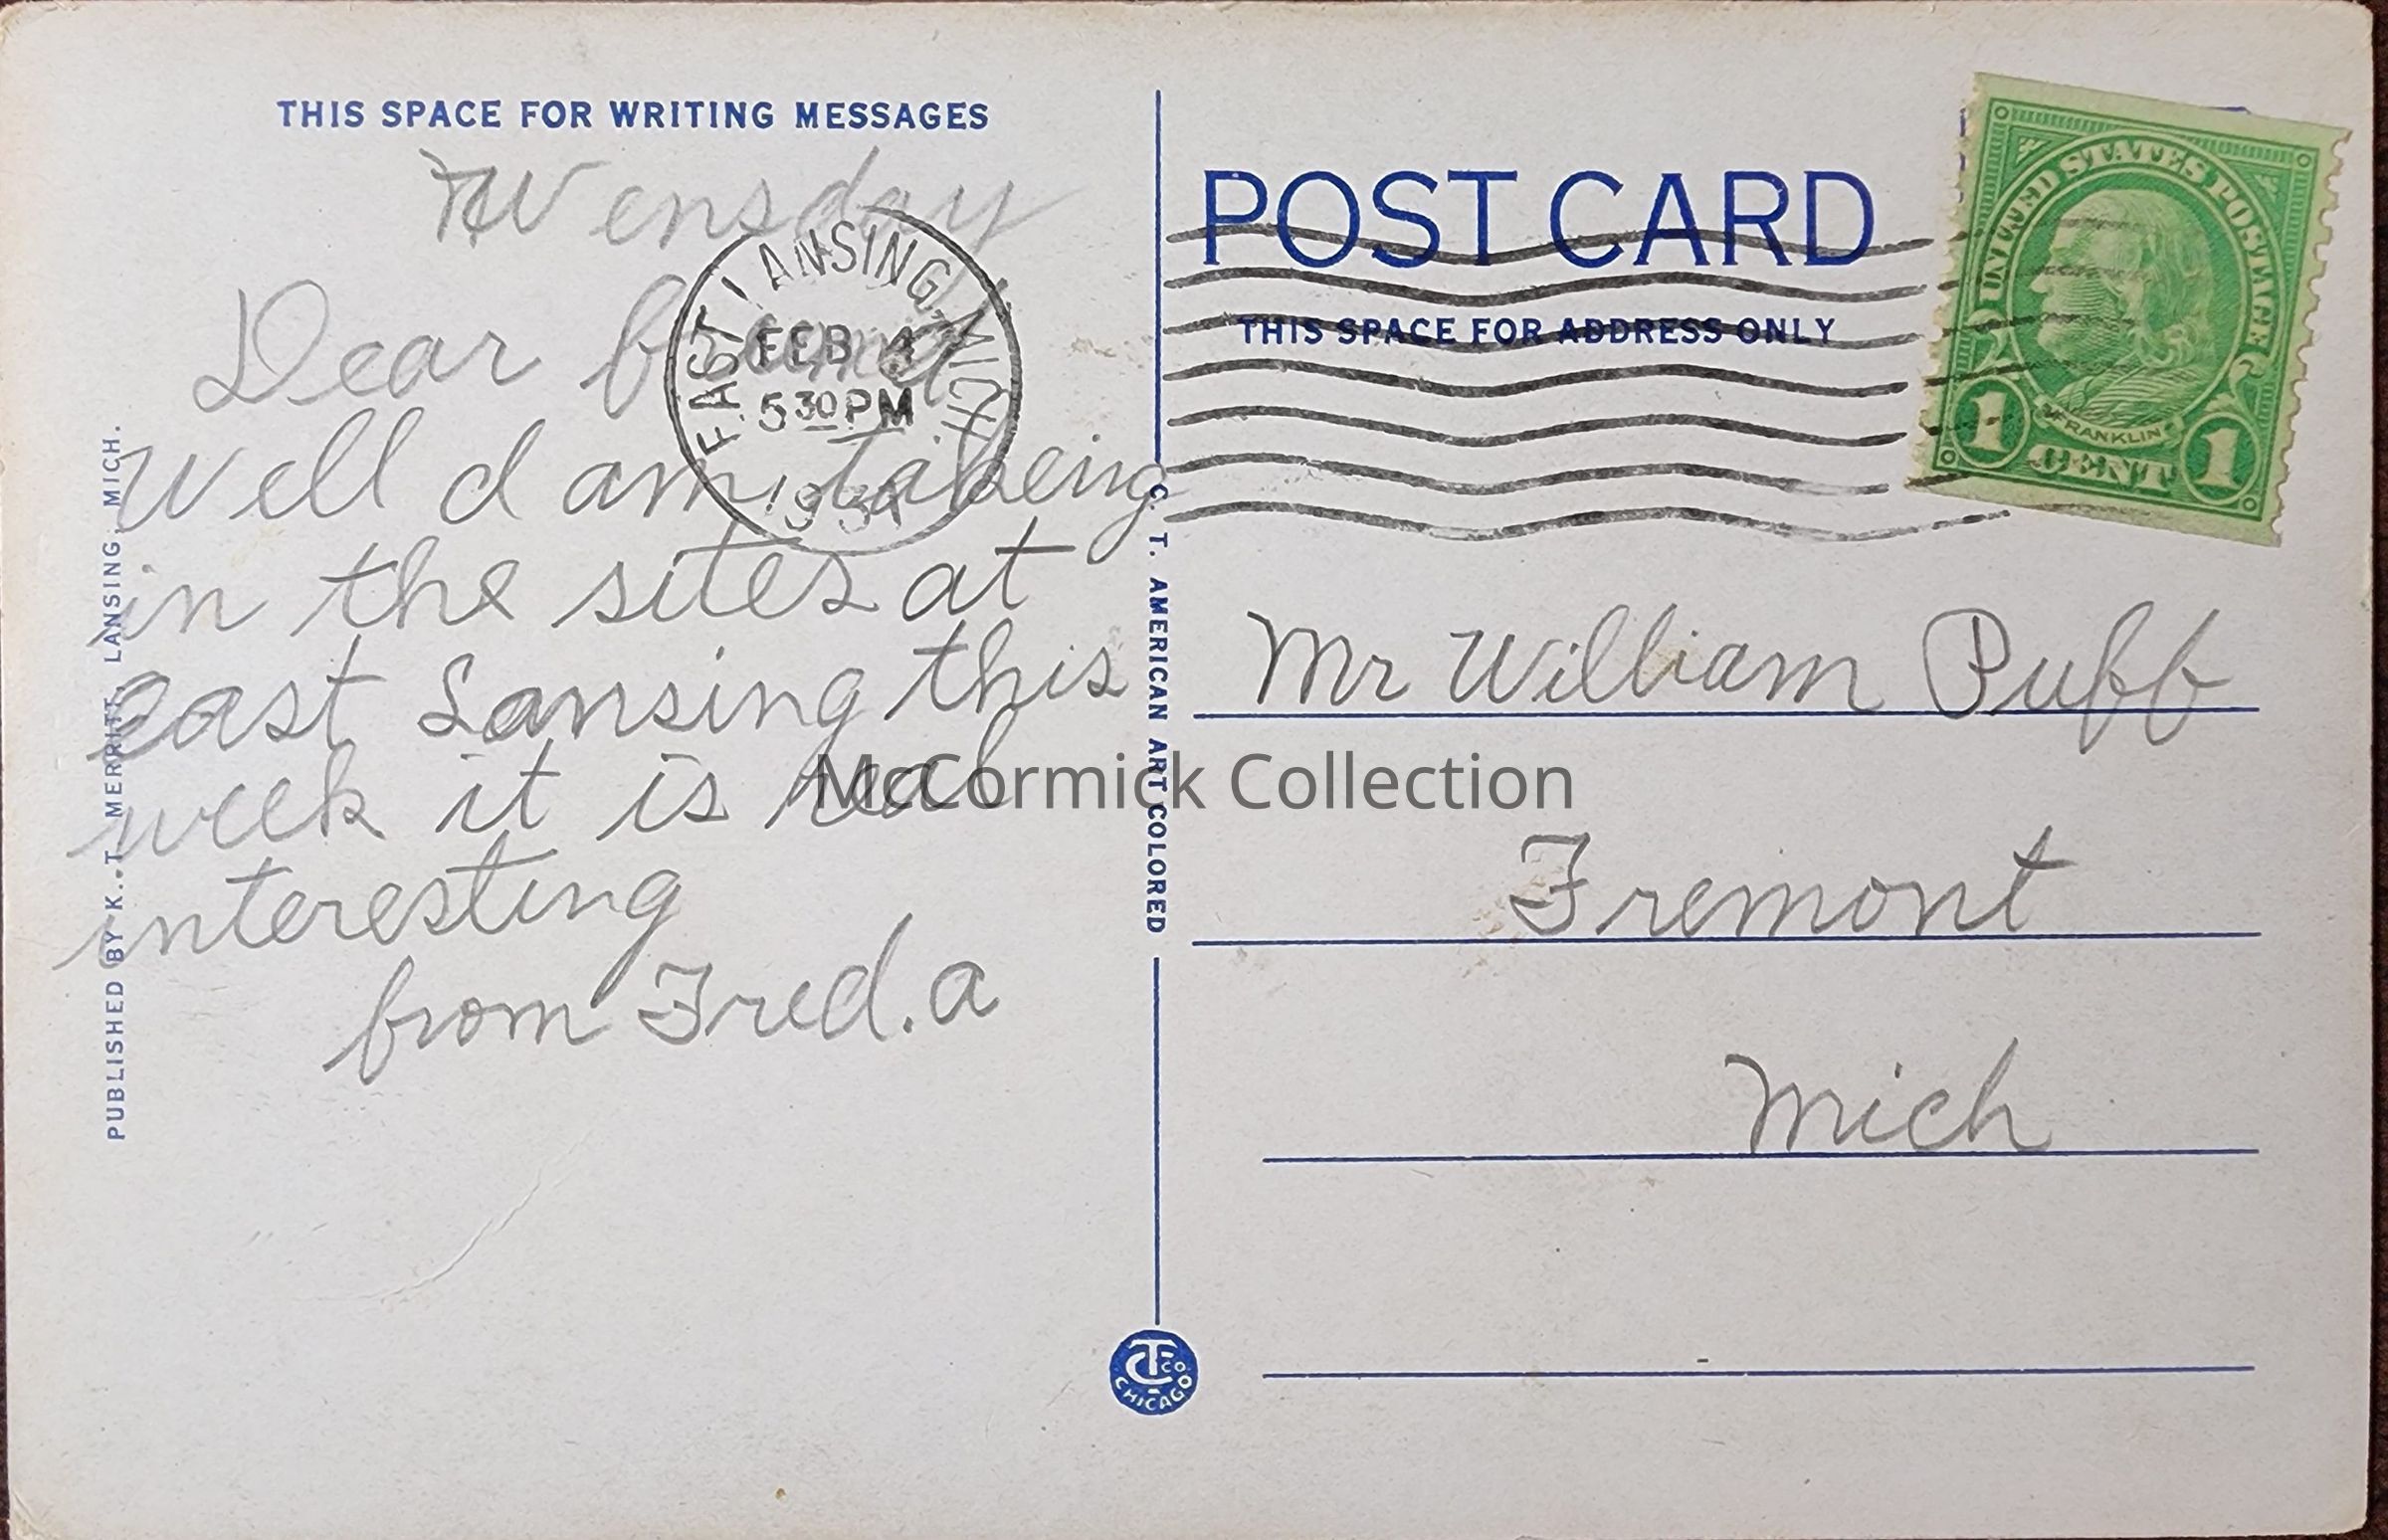 THIS SPACE FOR WRITING MESSAGES
Wensday
Dear
Well I am takeing
in the sites at
East Lansing this
week it is real
interesting
from Fred. a
PUBLISHED BY K. T. MERRITT, LANSING, MICH.
EAST LANSING, MICH.
FEB 4
5 30 PM
C. T. AMERICAN ART COLORED
C.T. CO. CHICAGO
POST CARD
THIS SPACE FOR ADDRESS ONLY
UNITED STATES POSTAGE
FRANKLIN
1 CENT 1
Mr William Puff
Fremont
Mich
McCormick Collection